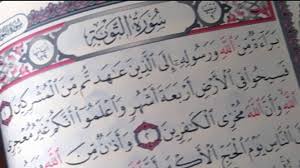 سُورَةُ التَّوْبَةِ
بَرَاءَةٌ مِّنَ اللَّهِ وَرَسُولِهِ إِلَى الَّذِينَ عَاهَدتُّم مِّنَ الْمُشْرِكِينَ ١
فَسِيحُوا فِي الْأَرْضِ أَرْبَعَةَ أَشْهُرٍ وَاعْلَمُوا أَنَّكُمْ غَيْرُ مُعْجِزِي
اللَّهِ وَأَنَّ اللَّهَ مُخْزِي الْكَافِرِينَ ٢ وَأَذَانٌ مِّنَ
النَّاسِ يَوْمَ الْحَجِّ الْأَكْبَرِ